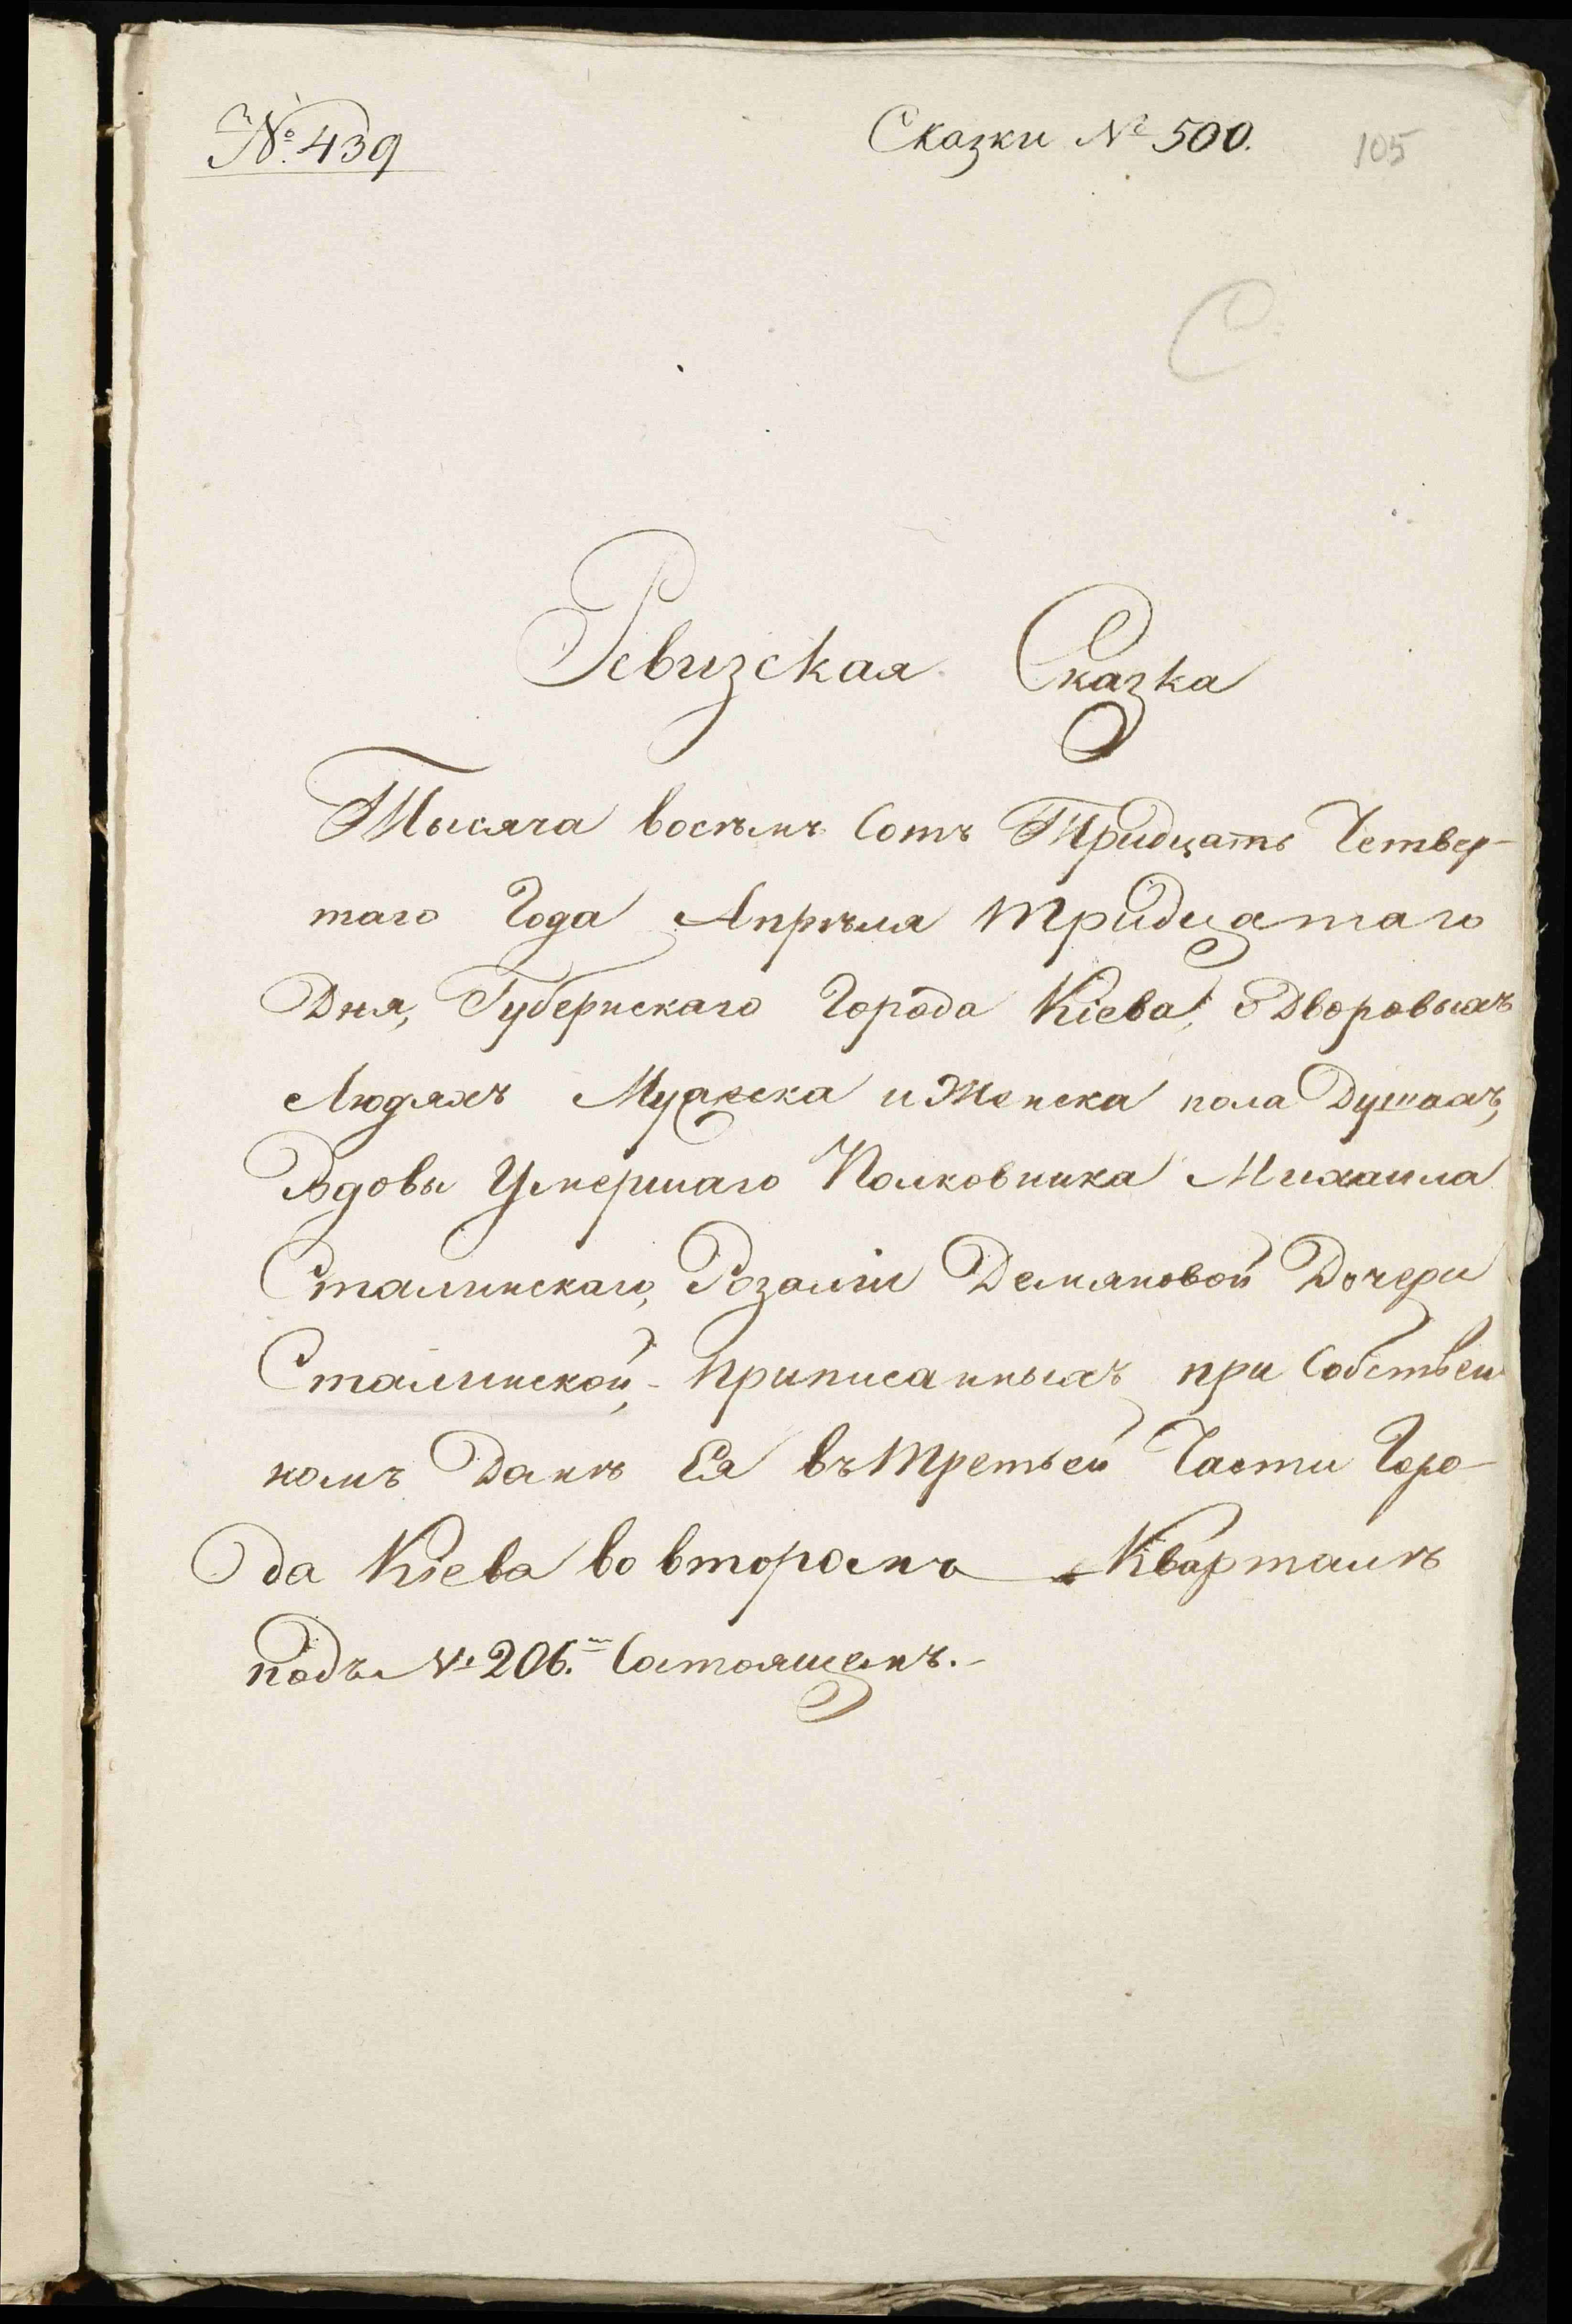 № 439
Сказки № 500.
105
С
Ревизская Сказка
Тысяча восѣмъ Сотъ Тридцать Четвер-
таго Года Апрѣля тридцатаго
Дня, Губернскаго Города Кіева, о Дворовыхъ
Людяхъ Мужеска и Женска пола Душахъ,
Вдовы Умершаго Полковника Михаила
Сталинскаго, Розаліи Демяновой Дочери
Сталинской, приписанныхъ при Собствен
номъ Домѣ Ея въ третьей Части Горо-
да Кіева во второмъ Кварталѣ
подъ № 206.м Состоящемъ.-